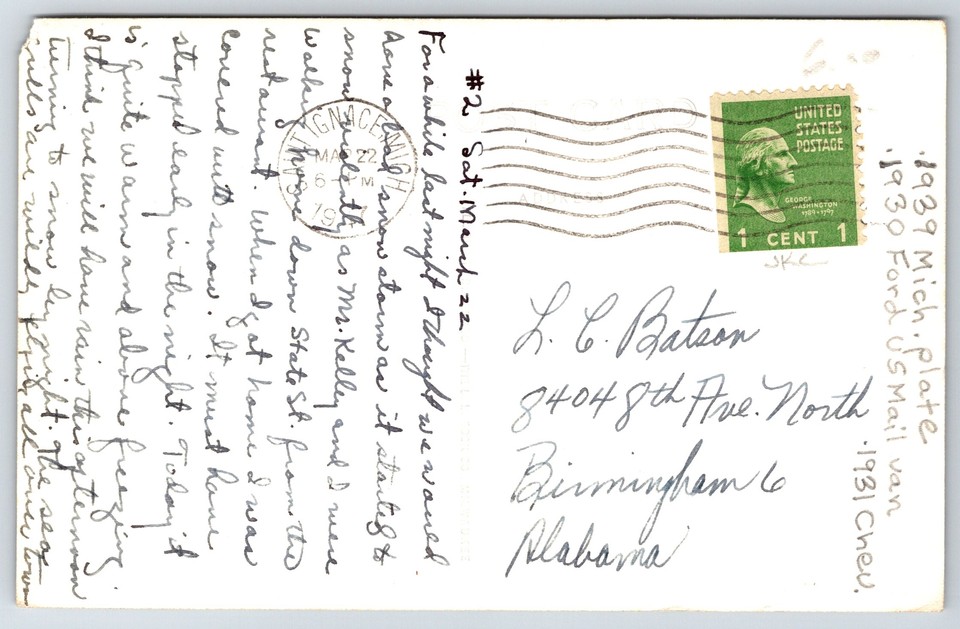 #2 Sat. March 22
For a while last night I thought we would
have a bad snow storm as it started to
snow as Mr. Kelley and I were
walking home down State St. from the
restaurant. When I got home I was
covered with snow. It must have
stopped early in the night. Today it
is quite warm and above freezing
I think we will have rain this afternoon
turning to snow by night. The sea
gulls are wildly flying all over town
SAINT IGNACE MICH
MAR 22
6 M
19
UNITED
STATES
POSTAGE
GEORGE
WASHINGTON
1789-1797
1 CENT 1
L. C. Batson
8404 8th Ave. North
Birmingham 6
Alabama
.1939 Mich. plate
.1930 Ford US Mail van
.1931 Chev.